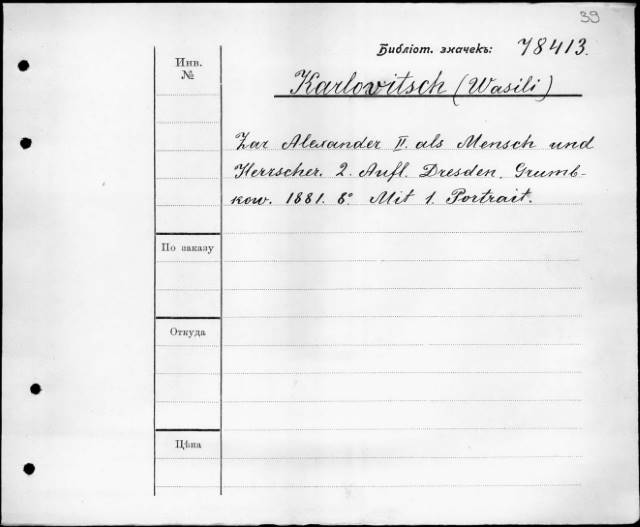 39
Библіот. значекъ: 78413.
Инв.
№
Karlovitsch (Wasili)
Zar Alexander II. als Mensch und
Herrscher. 2. Aufl. Dresden. Grumb-
kow. 1881. 8° Mit 1. Portrait.
По заказу
Откуда
Цѣна